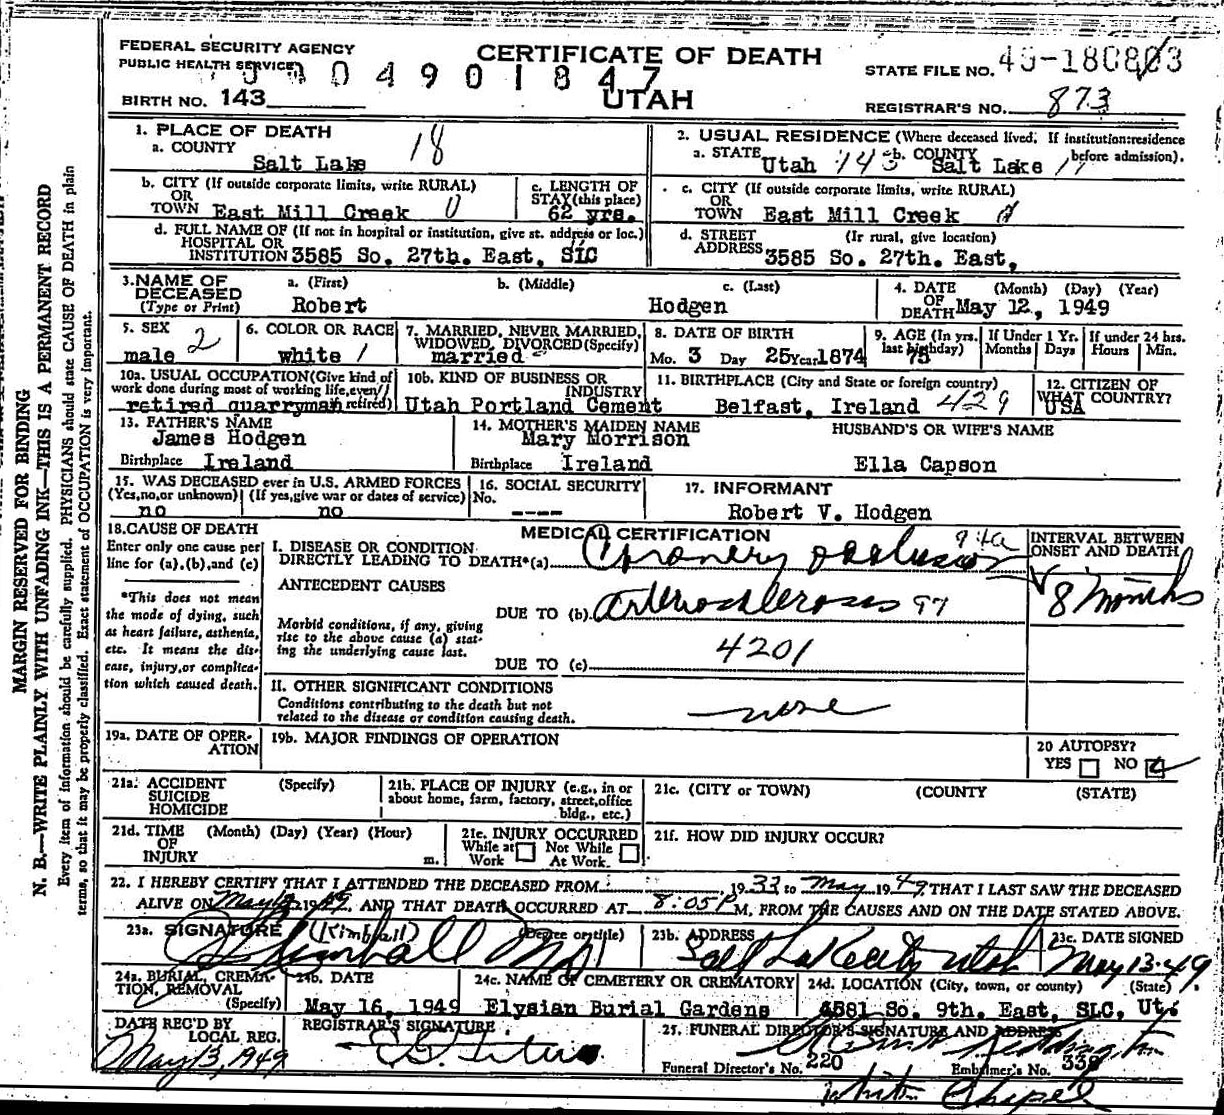 FEDERAL SECURITY AGENCY
PUBLIC HEALTH SERVICE
CERTIFICATE OF DEATH
UTAH
4901847
STATE FILE NO.
BIRTH NO. 143
REGISTRAR'S NO. 873
1. PLACE OF DEATH
a. COUNTY
Salt Lake 18
2. USUAL RESIDENCE (Where deceased lived. If institution:residence before admission).
a. STATE Utah 143 b. COUNTY Salt Lake
b. CITY (If outside corporate limits, write RURAL)
OR
TOWN East Mill Creek 0
c. LENGTH OF STAY (this place)
62 yrs.
c. CITY (If outside corporate limits, write RURAL)
OR
TOWN East Mill Creek
d. FULL NAME OF (If not in hospital or institution, give st. address or loc.)
HOSPITAL OR
INSTITUTION 3585 So. 27th. East, SLC
d. STREET (If rural, give location)
ADDRESS 3585 So. 27th. East,
3. NAME OF DECEASED (Type or Print)
a. (First) b. (Middle) c. (Last)
Robert Hodgen
4. DATE OF DEATH (Month) (Day) (Year)
May 12, 1949
5. SEX
male 2
6. COLOR OR RACE
white 1
7. MARRIED, NEVER MARRIED, WIDOWED, DIVORCED(Specify)
married
8. DATE OF BIRTH
Mo. 3 Day 25 Year 1874
9. AGE (In yrs. last birthday)
75
If Under 1 Yr. Months Days
If under 24 hrs. Hours Min.
10a. USUAL OCCUPATION (Give kind of work done during most of working life, even if retired)
retired quarryman
10b. KIND OF BUSINESS OR INDUSTRY
Utah Portland Cement
11. BIRTHPLACE (City and State or foreign country)
Belfast, Ireland 429
12. CITIZEN OF WHAT COUNTRY?
USA
13. FATHER'S NAME
James Hodgen
Birthplace Ireland
14. MOTHER'S MAIDEN NAME
Mary Morrison
Birthplace Ireland
HUSBAND'S OR WIFE'S NAME
Ella Capson
15. WAS DECEASED ever in U.S. ARMED FORCES
(Yes, no, or unknown) (If yes, give war or dates of service)
no no
16. SOCIAL SECURITY No.
----
17. INFORMANT
Robert V. Hodgen
18. CAUSE OF DEATH
Enter only one cause per line for (a), (b), and (c)
*This does not mean the mode of dying, such as heart failure, asthenia, etc. It means the disease, injury, or complication which caused death.
MEDICAL CERTIFICATION
I. DISEASE OR CONDITION
DIRECTLY LEADING TO DEATH*(a) Coronery occlusion 94a
ANTECEDENT CAUSES
DUE TO (b) Arteriosclerosis 97
Morbid conditions, if any, giving rise to the above cause (a) stating the underlying cause last.
4201
DUE TO (c)
INTERVAL BETWEEN ONSET AND DEATH
8 months
II. OTHER SIGNIFICANT CONDITIONS
Conditions contributing to the death but not related to the disease or condition causing death.
none
19a. DATE OF OPERATION
19b. MAJOR FINDINGS OF OPERATION
20 AUTOPSY?
YES NO
21a. ACCIDENT (Specify)
SUICIDE
HOMICIDE
21b. PLACE OF INJURY (e.g., in or about home, farm, factory, street, office bldg., etc.)
21c. (CITY or TOWN) (COUNTY) (STATE)
21d. TIME (Month) (Day) (Year) (Hour)
OF
INJURY m.
21e. INJURY OCCURRED
While at Work Not While At Work
21f. HOW DID INJURY OCCUR?
22. I HEREBY CERTIFY THAT I ATTENDED THE DECEASED FROM , 1933 to May 1949, THAT I LAST SAW THE DECEASED
ALIVE ON May 12 1949, AND THAT DEATH OCCURRED AT 8:05 P M, FROM THE CAUSES AND ON THE DATE STATED ABOVE.
23a. SIGNATURE (Kimball) (Degree or title)
Kimball MD
23b. ADDRESS
Salt Lake City Utah
23c. DATE SIGNED
May 13-49
24a. BURIAL, CREMATION, REMOVAL (Specify)
24b. DATE
May 16, 1949
24c. NAME OF CEMETERY OR CREMATORY
Elysian Burial Gardens
24d. LOCATION (City, town, or county) (State)
4581 So. 9th. East, SLC, Ut.
DATE REC'D BY LOCAL REG.
May 13, 1949
REGISTRAR'S SIGNATURE
25. FUNERAL DIRECTOR'S SIGNATURE AND ADDRESS
Funeral Director's No. 220
Embalmer's No.
Chapel
MARGIN RESERVED FOR BINDING
N. B.—WRITE PLAINLY WITH UNFADING INK—THIS IS A PERMANENT RECORD
Every item of information should be carefully supplied. PHYSICIANS should state CAUSE OF DEATH in plain
terms, so that it may be properly classified. Exact statement of OCCUPATION is very important.